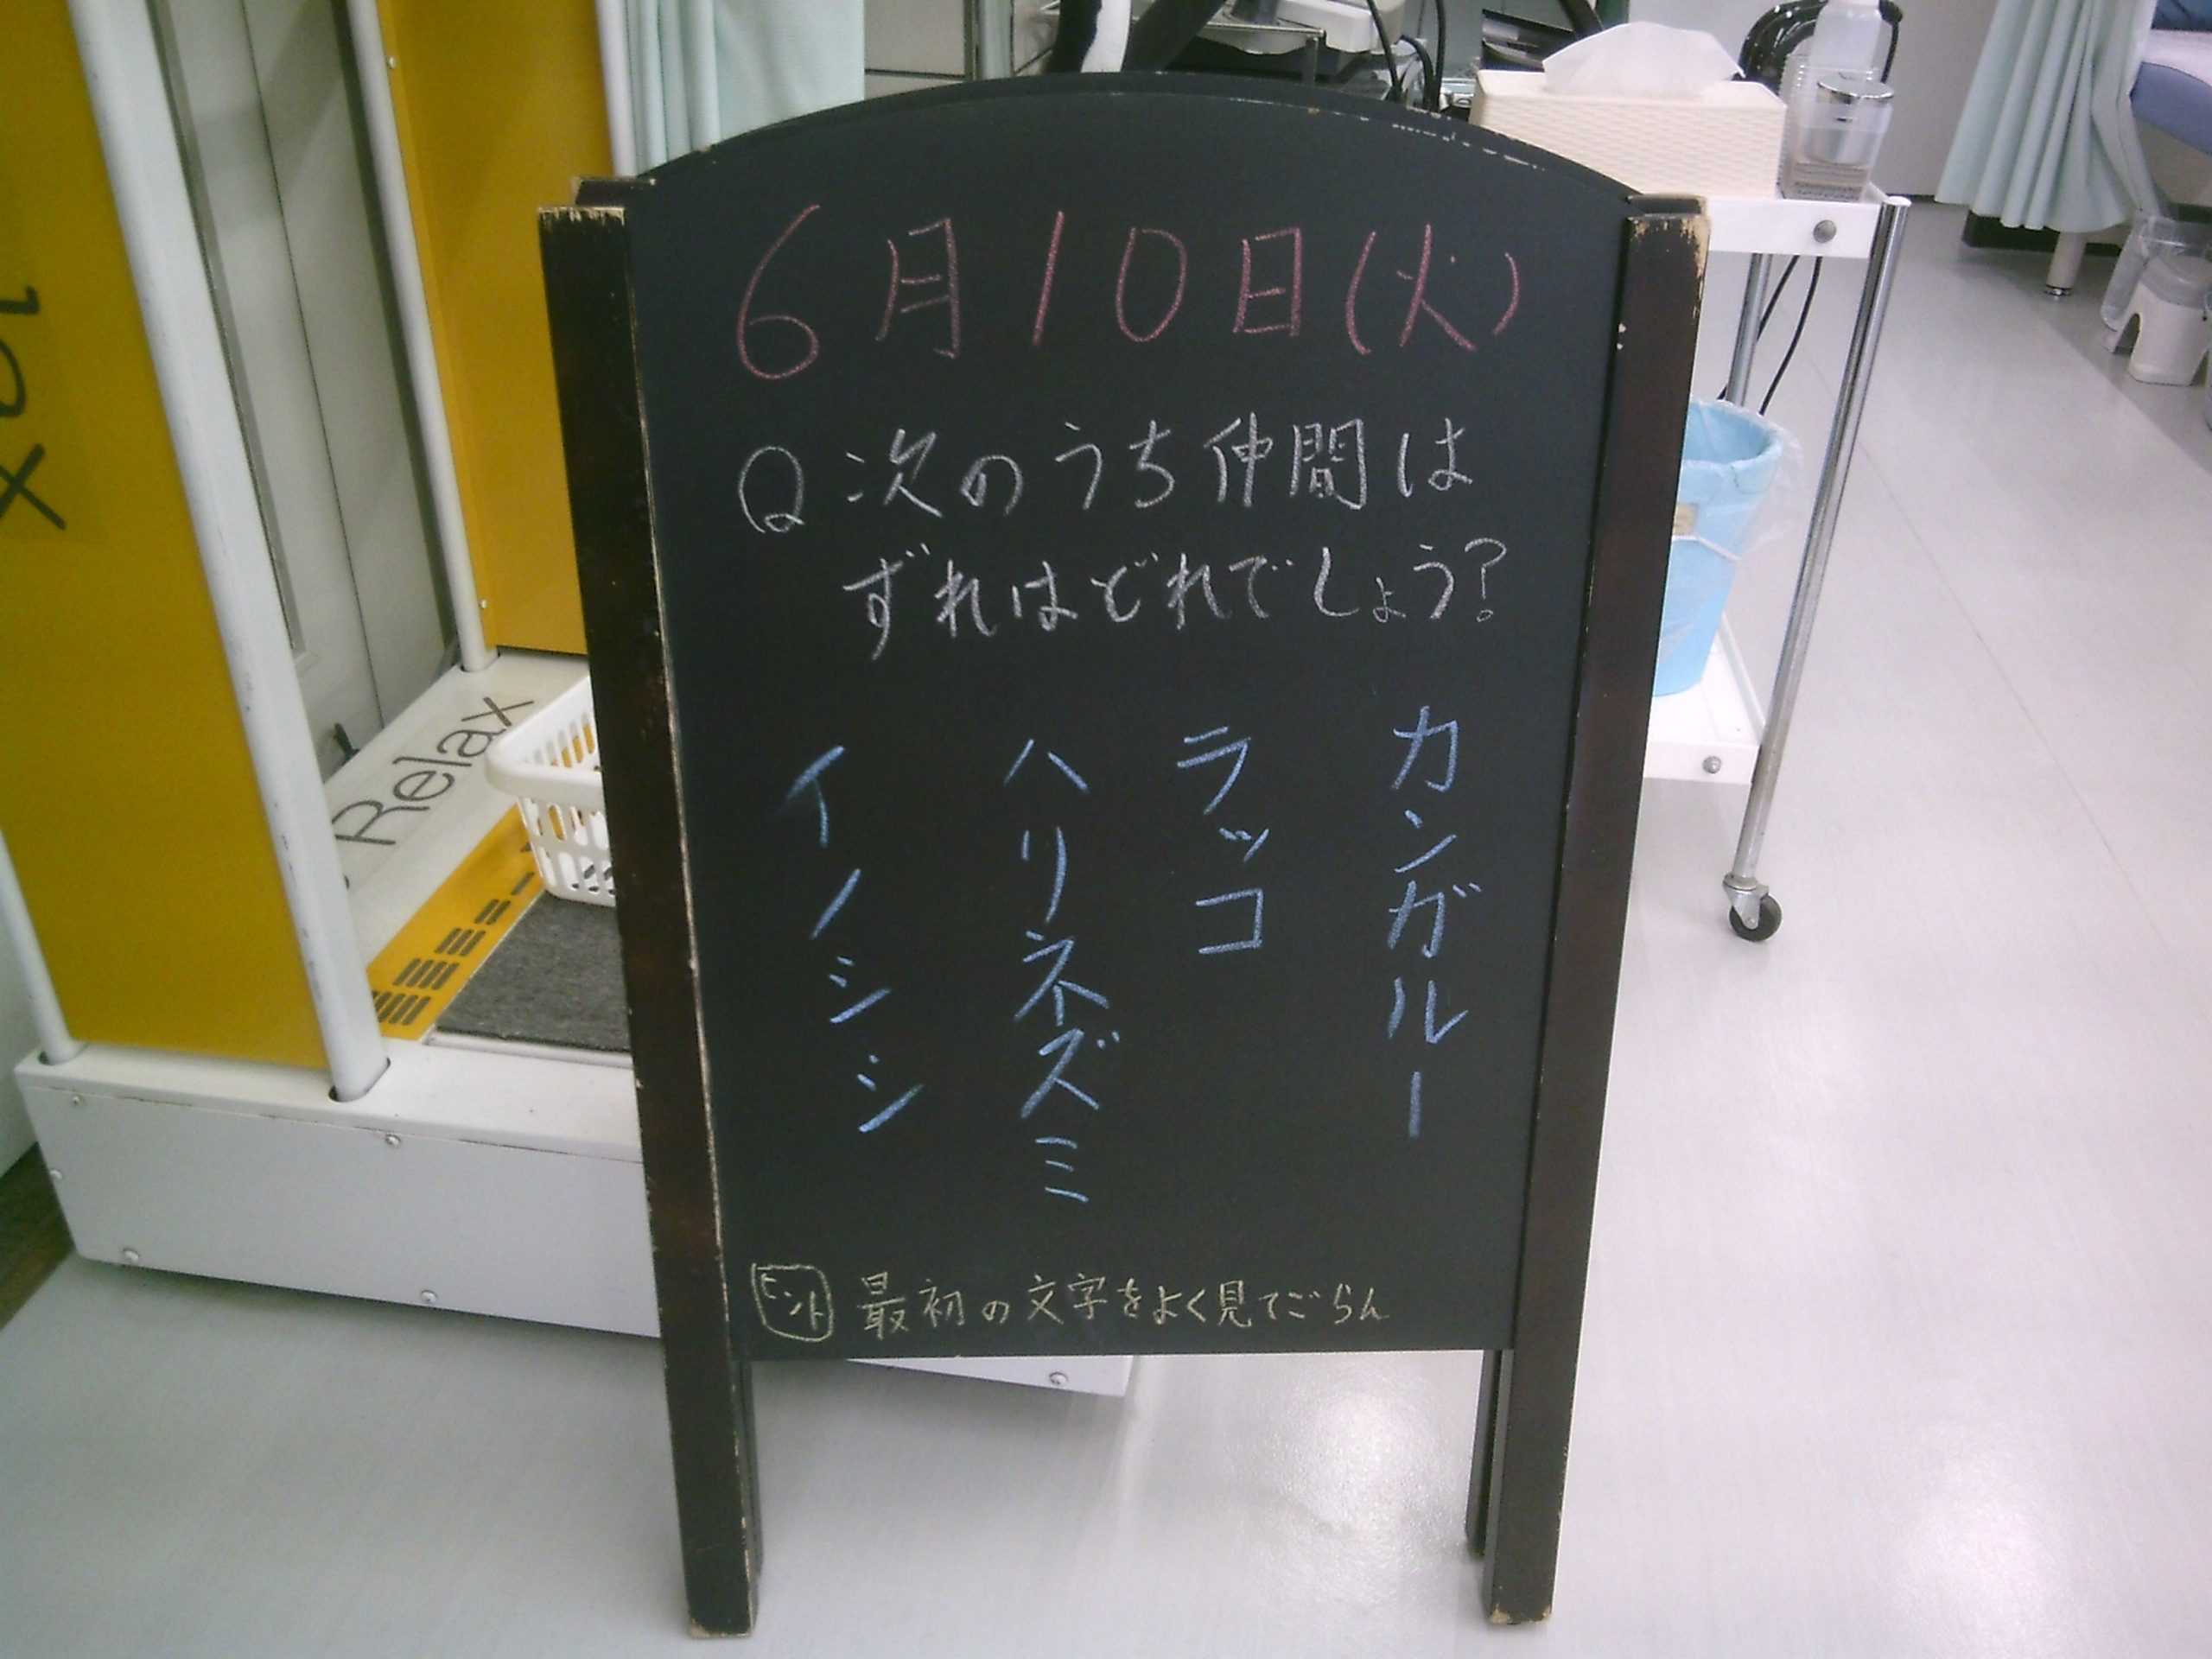 6月10日(火)
Q 次のうち仲間は
ずれはどれでしょう?
カンガルー
ラッコ
ハリネズミ
イノシシ
ヒント 最初の文字をよく見てごらん
Relax